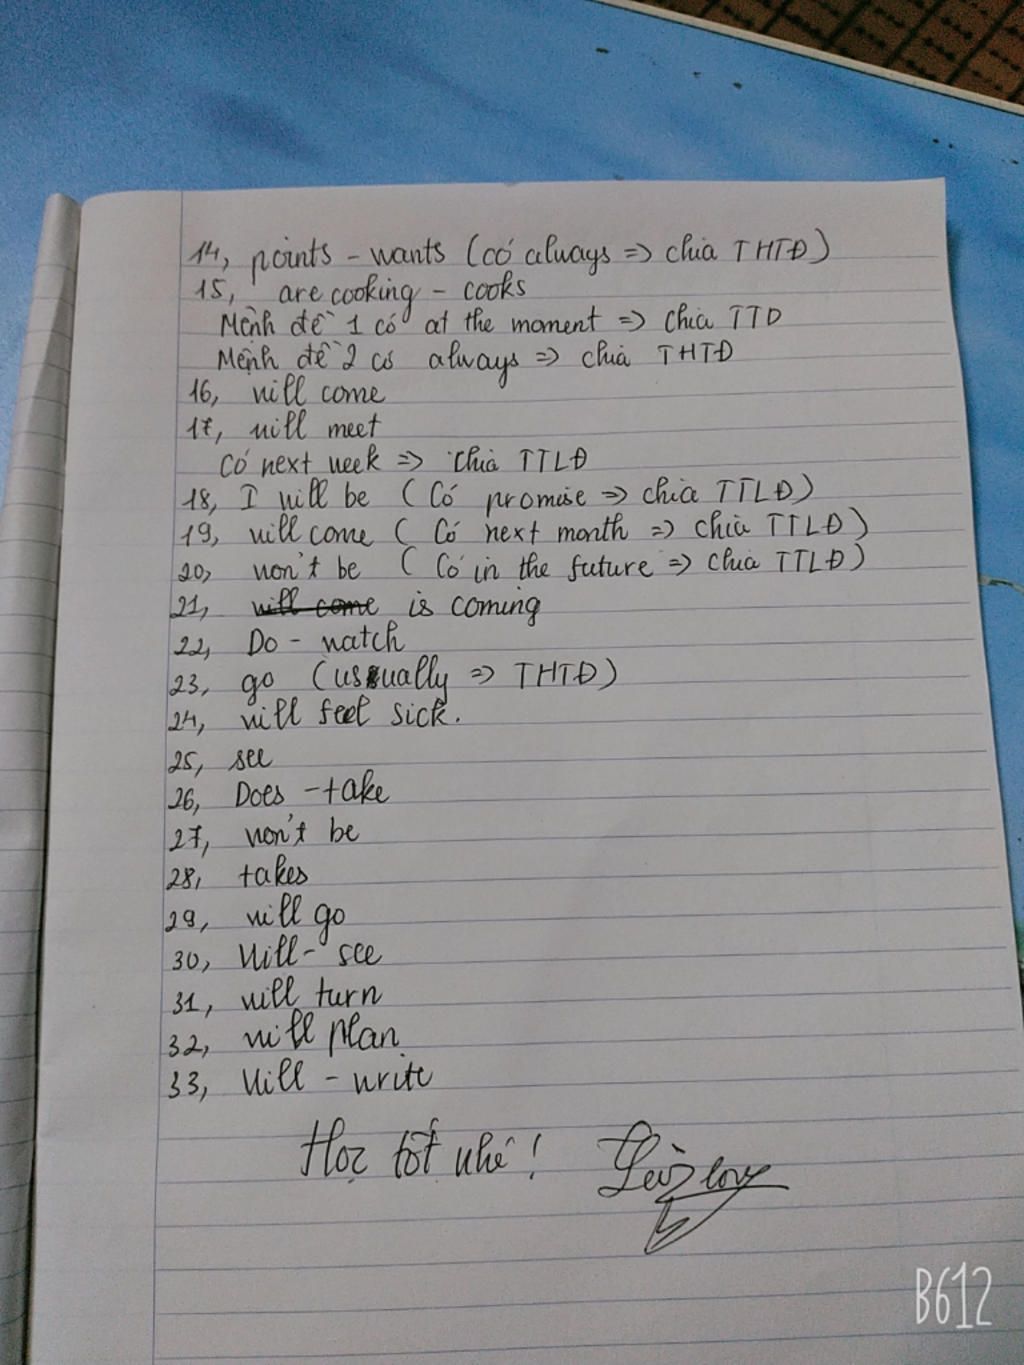 14, points - wants (có always => chia THTĐ)
15, are cooking - cooks
Mệnh đề 1 có at the moment => chia TTD
Mệnh đề 2 có always => chia THTĐ
16, will come
17, will meet
Có next week => chia TTLĐ
18, I will be (Có promise => chia TTLĐ)
19, will come (Có next month => chia TTLĐ)
20, won't be (Có in the future => chia TTLĐ)
21, will come is coming
22, Do - watch
23, go (usually => THTĐ)
24, will feel sick.
25, see
26, Does - take
27, won't be
28, takes
29, will go
30, Will - see
31, will turn
32, will plan
33, Will - write
Học tốt nhé!
B612